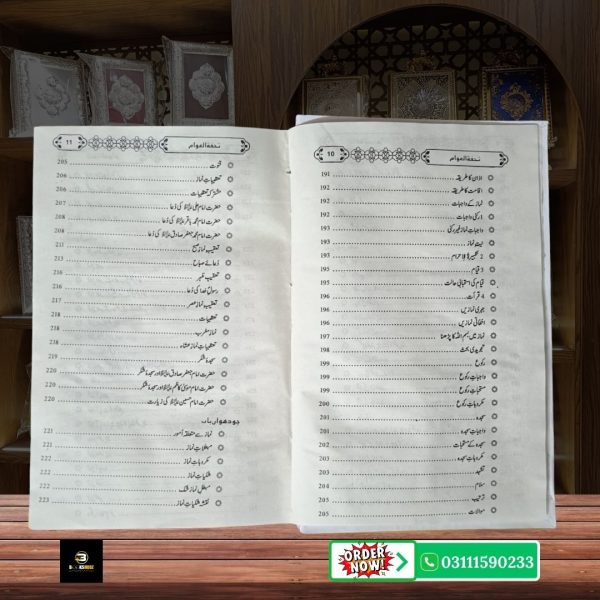 تحفۃ العوام
10
اذان کا طریقہ 191
اقامت کا طریقہ 192
نماز کے واجبات 192
ارکی واجبات 192
واجبات نماز غیر رکنی 193
نیت نماز 193
2 تکبیرۃ الاحرام 193
3 قیام 195
قیام کی استحبابی حالت 195
4 قرآت 196
جہری نمازیں 196
اخفاتی نمازیں 196
نماز میں بسم اللہ کا پڑھنا 197
تجویدی بحث 198
رکوع 198
واجبات رکوع 199
مستحبات رکوع 199
مکروہات رکوع 200
سجدہ 201
سجدہ کے مستحبات 202
مکروہات سجدہ 203
تشہد 203
سلام 204
ترتیب 205
موالات 205
تحفۃ العوام
11
قنوت 205
تعقیبات نماز 206
مشترکہ تعقیبات 206
حضرت امام علی علیہ السلام کی دعا 207
حضرت امام محمد باقر علیہ السلام کی دعا 208
حضرت امام جعفر صادق علیہ السلام کی دعا 208
تعقیب نماز صبح 211
دعائے صباح 213
تعقیب ظہر 216
رسول خدا کی دعا 216
تعقیب نماز عصر 217
تعقیبات 218
نماز مغرب 218
تعقیبات نماز عشاء 218
سجدہ شکر 219
حضرت امام جعفر صادق علیہ السلام اور سجدہ شکر 220
حضرت امام موسیٰ کاظم علیہ السلام اور سجدہ شکر 220
حضرت امام حسین علیہ السلام کی زیارت 220
چودھواں باب
نماز سے متعلقہ امور 221
مبطلات نماز 221
مکروہات نماز 222
شکیات نماز 222
مبطل نماز شک 222
نقشہ شکیات نماز 223
ORDER NOW!
03111590233